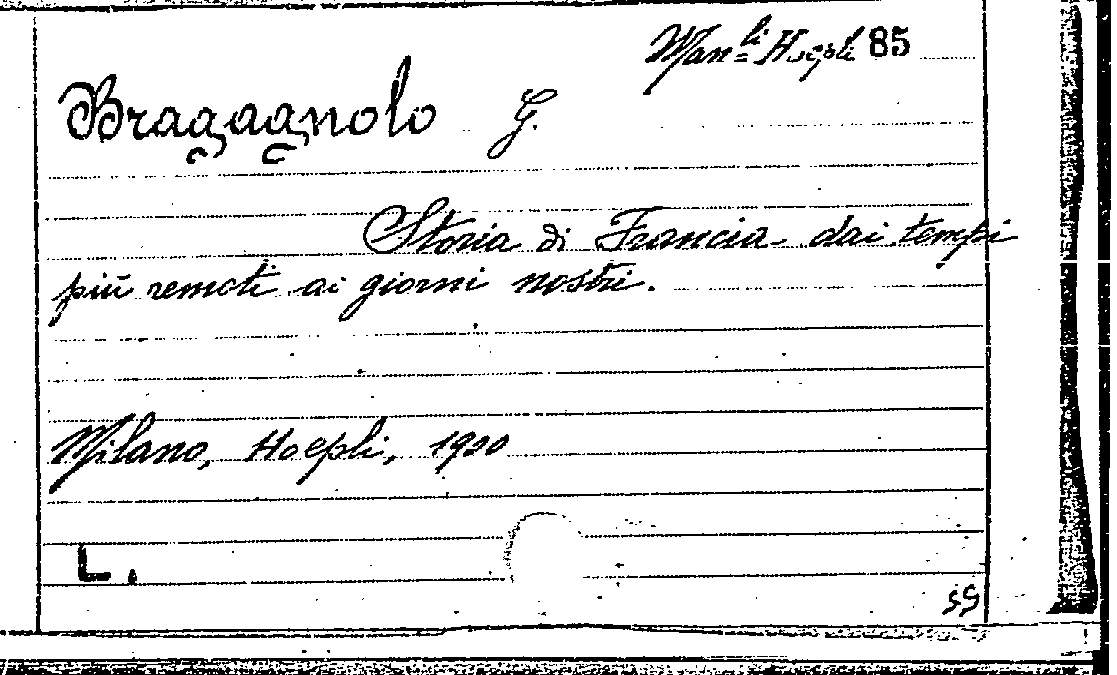 Man.li Hoepli 85
Bragagnolo G.
Storia di Francia dai tempi
più remoti ai giorni nostri.
Milano, Hoepli, 1920
L.